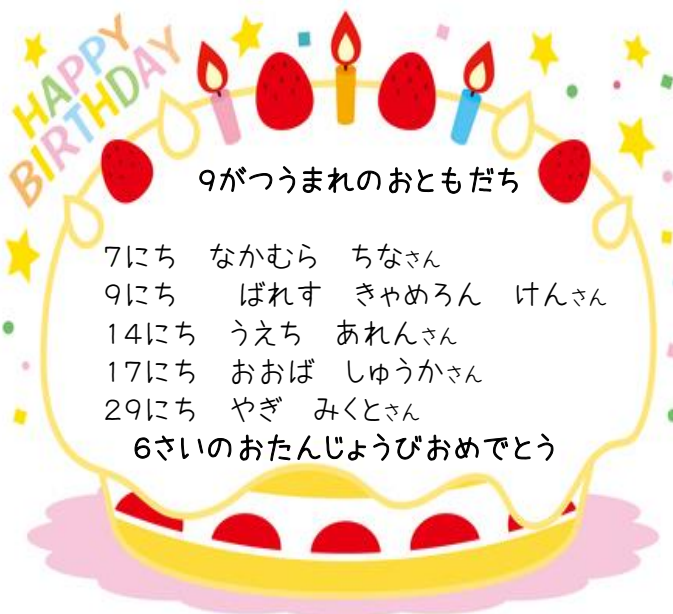 HAPPY
BIRTHDAY
9がつうまれのおともだち
7にち　なかむら　ちなさん
9にち　　ばれす　きゃめろん　けんさん
14にち　うえち　あれんさん
17にち　おおば　しゅうかさん
29にち　やぎ　みくとさん
6さいのおたんじょうびおめでとう